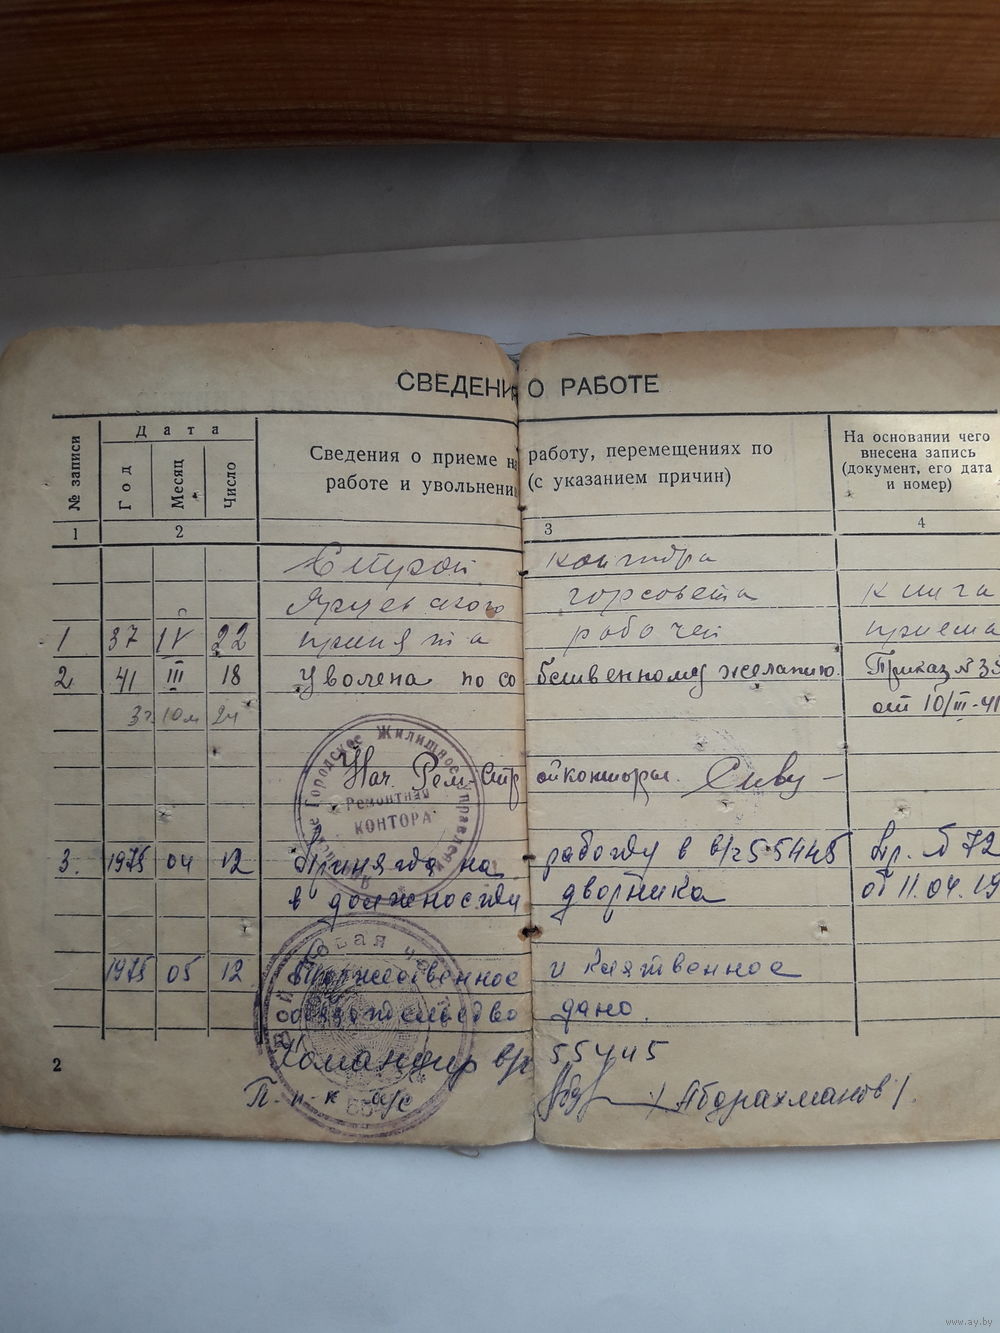 СВЕДЕНИЯ О РАБОТЕ
№ записи
Дата
Год
Месяц
Число
Сведения о приеме на работу, перемещениях по
работе и увольнении (с указанием причин)
На основании чего
внесена запись
(документ, его дата
и номер)
1 2 3 4
Строй контора
Ярцевского горсовета книга
1 37 IV 22 принята рабочей приема
2 41 III 18 Уволена по собственному желанию. Приказ №
3г 10м 24 от 10/III-41
Городское Жилищное Управление
Ремонтная
КОНТОРА
Нач. Рем-Стройконторы.
3. 1975 04 12 Принята на работу в в/ч 55445 Пр. № 72
в должности дворника от 11.04.19
1975 05 12
обязательство дано.
Командир в/ч 55445
П-п-к а/с /Абдрахманов/
2
www.ay.by